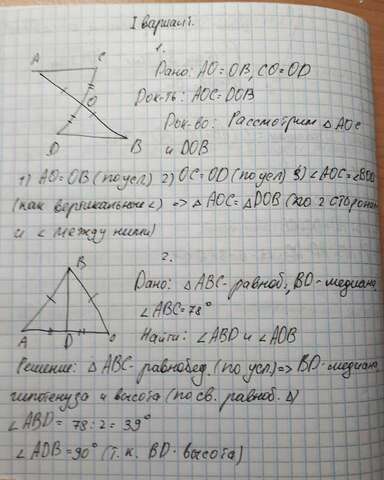 I вариант.
1.
A
C
Дано: AO=OB, CO=OD
Док-ть: AOC=DOB
O
Док-во: Рассмотрим △AOC
и DOB
D
B
1) AO=OB (по усл) 2) OC=OD (по усл) 3) ∠AOC=∠BOD
(как вертикальные ∠) => △AOC=△DOB (по 2 сторонам
и ∠ между ними)
2.
B
Дано: △ABC-равноб., BD-медиана,
∠ABC=78°
Найти: ∠ABD и ∠ADB
A
D
Решение: △ABC-равнобед. (по усл.)=> BD-медиана,
гипотенуза и высота (по св. равноб. △)
∠ABD = 78:2=39°
∠ADB=90° (т.к. BD-высота)